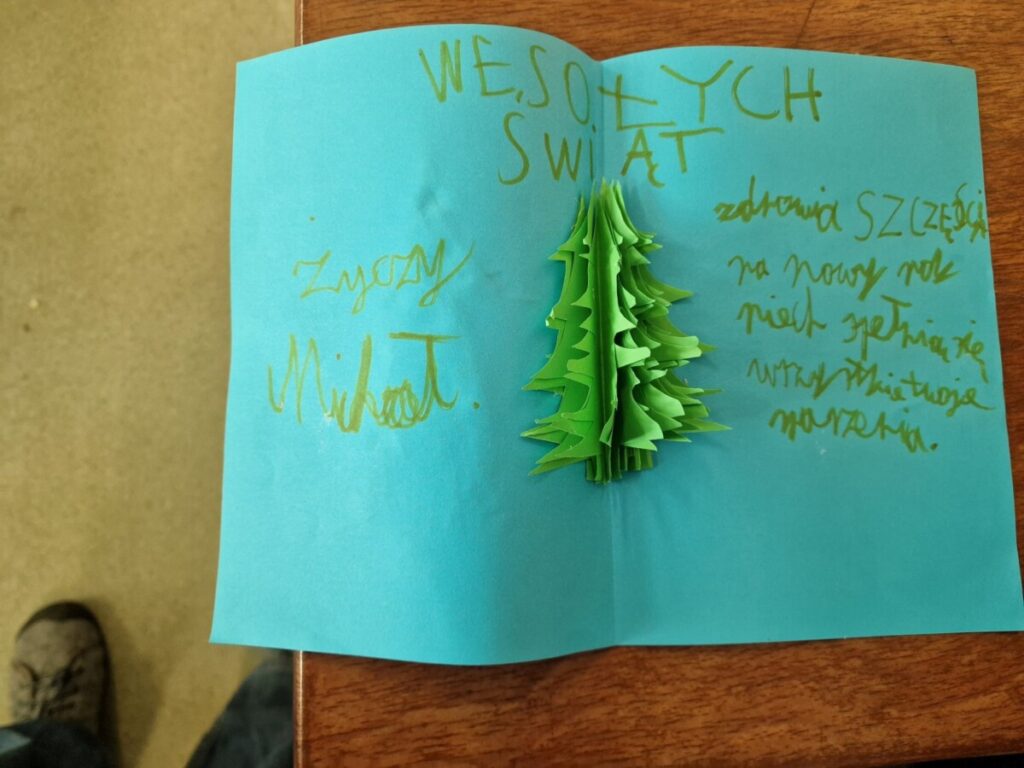 WESOŁYCH
ŚWIĄT
życzy
Michał.
zdrowia SZCZĘŚCIA
na nowy rok
niech spełnią się
wszystkie twoje
marzenia.